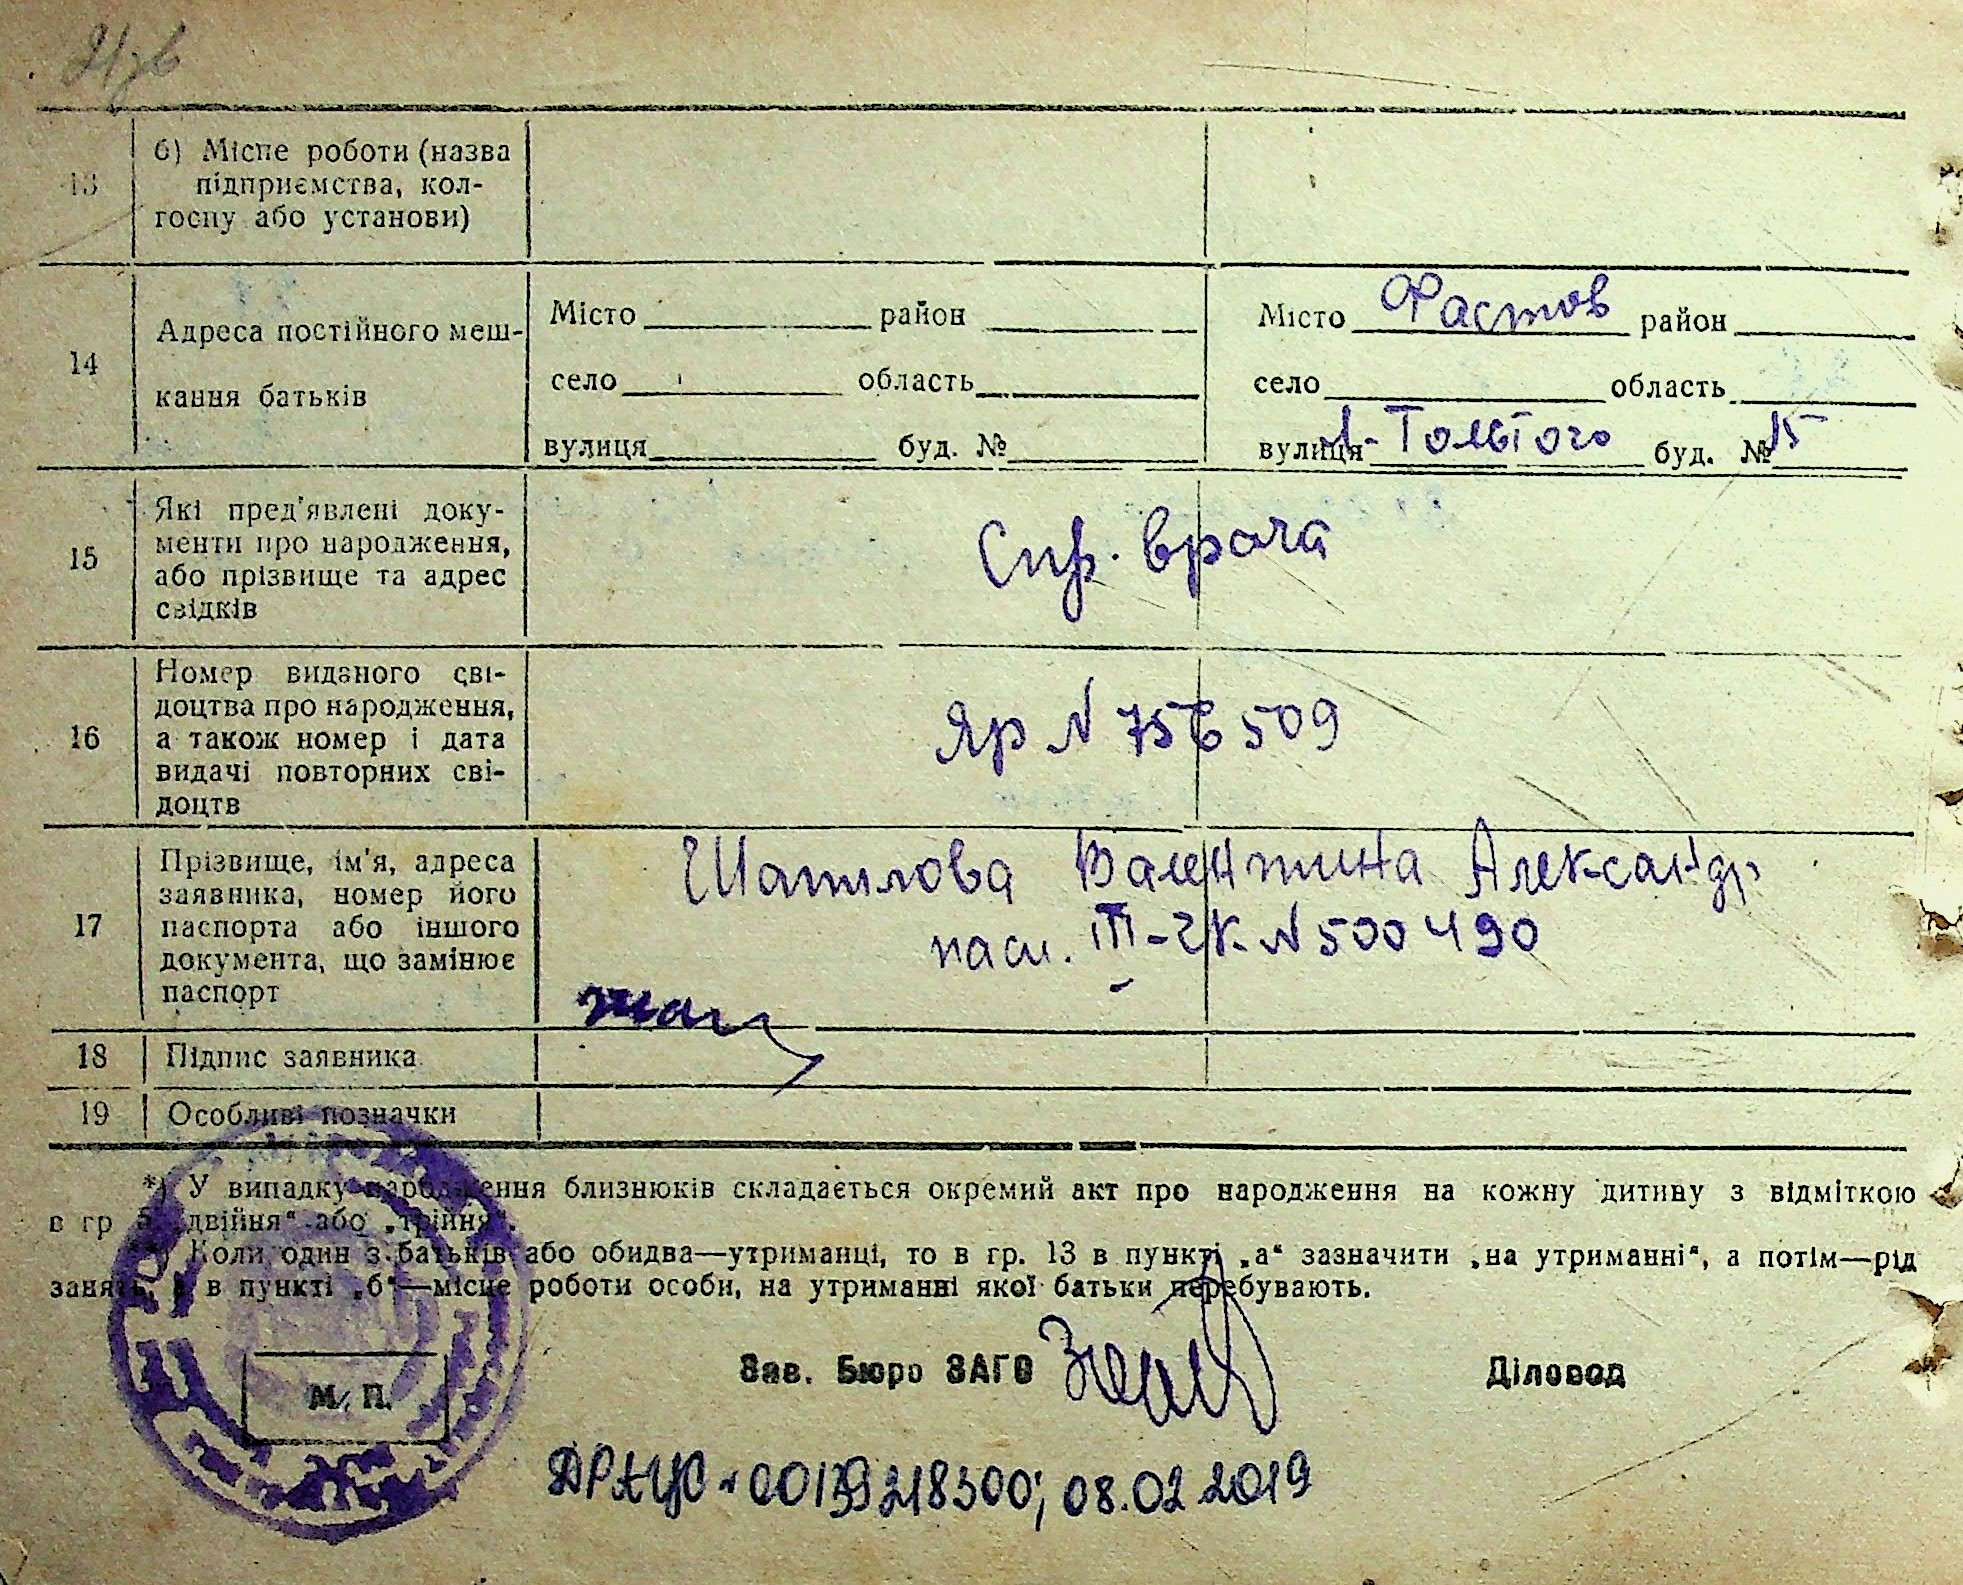 13 б) Місце роботи (назва
підприємства, кол-
госпу або установи)
14 Адреса постійного меш-
кання батьків
Місто район
село область
вулиця буд. №
Місто Фастов район
село область
вулиця Л-Толстого буд. № 15
15 Які пред'явлені доку-
менти про народження,
або прізвище та адрес
свідків
Спр. врача
16 Номер виданого сві-
доцтва про народження,
а також номер і дата
видачі повторних сві-
доцтв
Яр N 756509
17 Прізвище, ім'я, адреса
заявника, номер його
паспорта або іншого
документа, що замінює
паспорт
Шатилова Валентина Александр.
пасп. III-ЧК N 500490
18 Підпис заявника
19 Особливі позначки
*) У випадку народження близнюків складається окремий акт про народження на кожну дитину з відміткою
в гр 5 „двійня“ або „трійня“.
**) Коли один з батьків або обидва—утриманці, то в гр. 13 в пункті „а“ зазначити „на утриманні“, а потім—рід
занять, а в пункті „б“—місце роботи особи, на утриманні якої батьки перебувають.
Зав. Бюро ЗАГС
Діловод
М. П.
08.02.2019